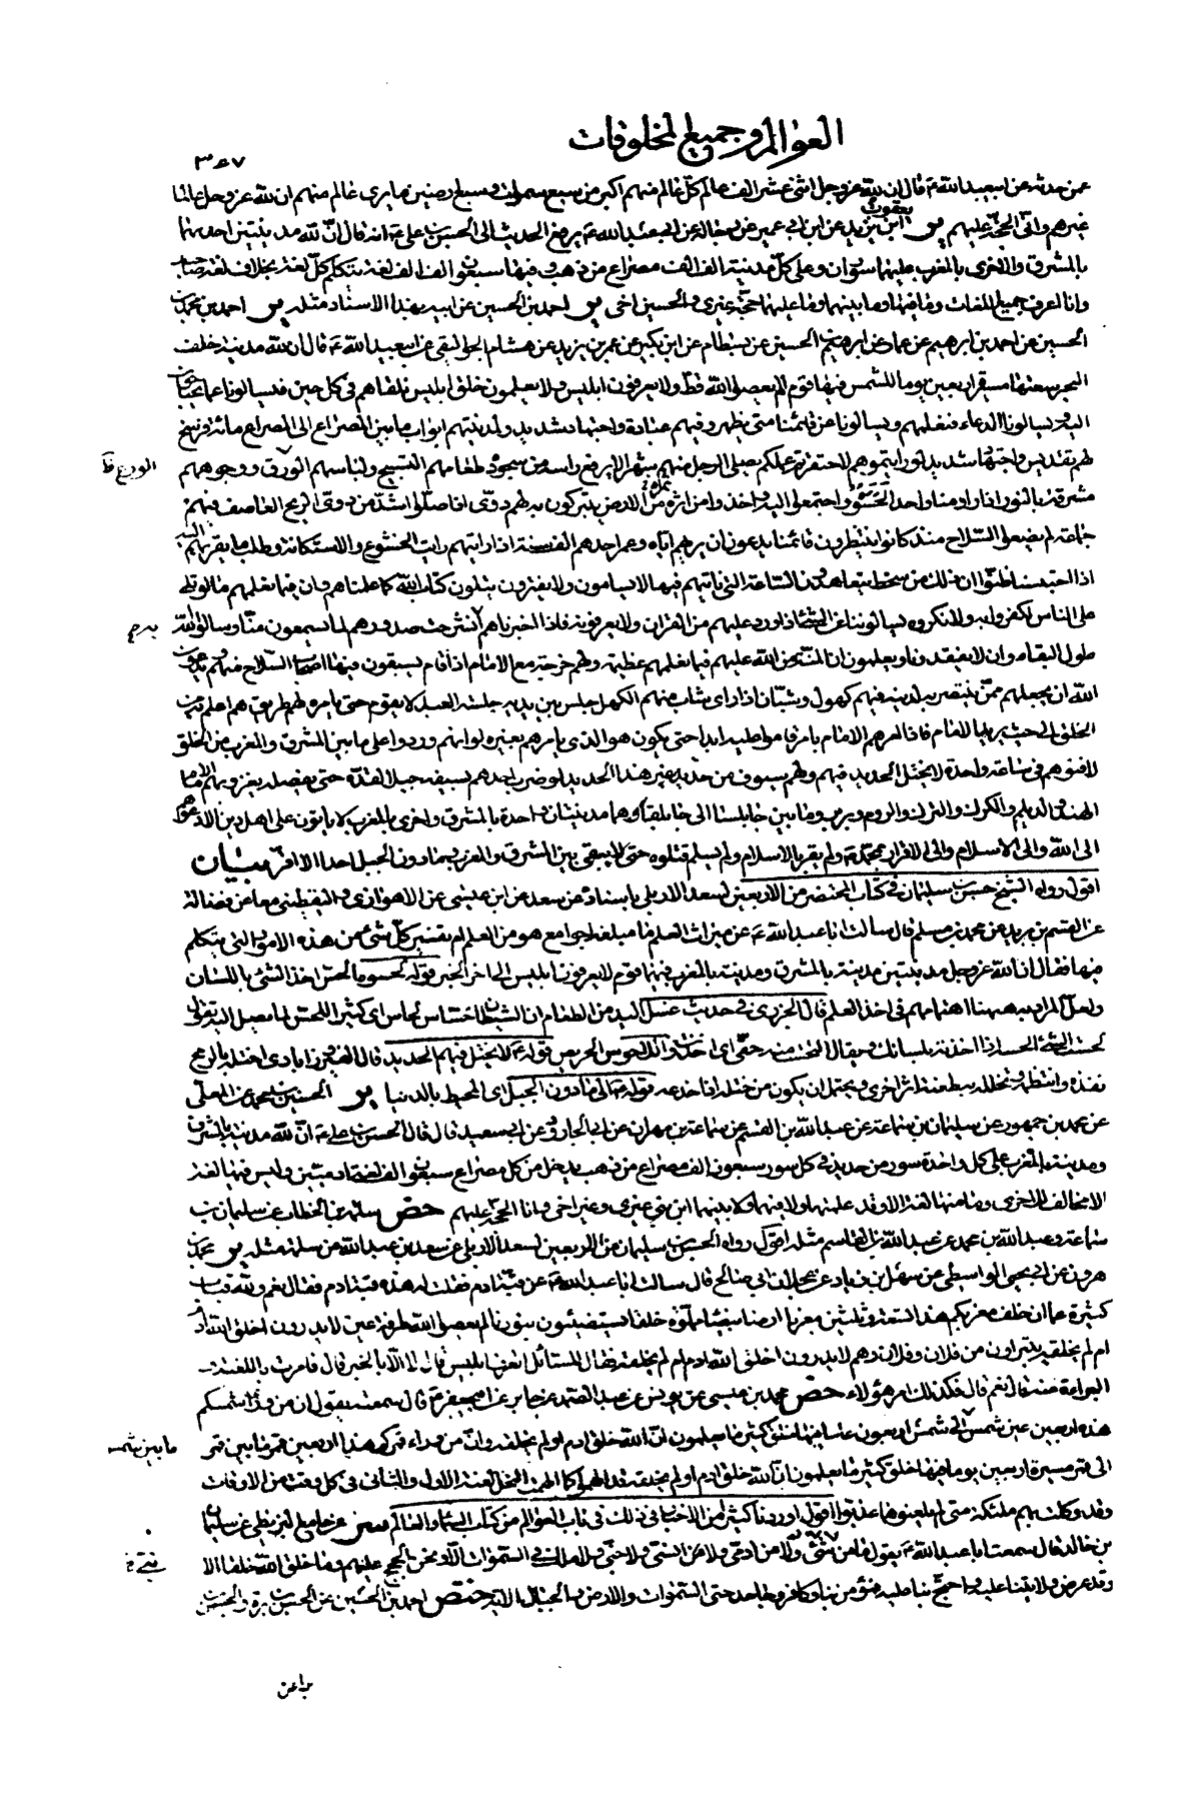 العوالم وجميع المخلوقات
٣٦٧
عمن حدثه عن ابيعبد الله ع قال ان لله عز وجل اثنى عشر الف عالم كل عالم منهم اكبر من سبع سموات وسبع ارضين ما يرى عالم منهم ان لله عز وجل عالما
غيرهم وانى الحجة عليهم ير ابن يزيد عن ابن ابي عمير عن رجاله عن ابي عبد الله ع يرفع الحديث الى الحسن بن على ع انه قال ان لله مدينتين احديهما
يعقوب
بالمشرق والاخرى بالمغرب عليهما سوران وعلى كل مدينة الف الف مصراع من ذهب وفيها سبعون الف الف لغة يتكلم كل لغة بخلاف لغة صاحبه
وانا اعرف جميع اللغات وما فيهما وما بينهما وما عليهما حجة غيري والحسين اخى ير احمد بن الحسين عن ابيه بهذا الاسناد مثله ير احمد بن محمد بن
الحسين عن احمد بن ابرهيم عن عمار عن ابرهيم بن الحسين عن بسطام عن ابن بكير عن عمر بن يزيد عن هشام الجواليقى عن ابيعبد الله ع قال ان لله مدينة خلف
البحر سعتها مسيرة اربعين يوما للشمس فيها قوم لم يعصوا الله قط ولا يعرفون ابليس ولا يعلمون خلق ابليس نلقاهم في كل حين فيسألونا عما يحتاجون
اليه ويسألونا الدعاء فنعلمهم ويسألونا عن قائمنا متى يظهر وفيهم عبادة واجتهاد شديد ولمدينتهم ابواب ما بين المصراع الى المصراع مائة فرسخ
لهم تقديس واجتهاد شديد لو رايتموهم لاحتقرتم عملكم يصلى الرجل منهم شهرا لا يرفع راسه من سجوده طعامهم التسبيح ولباسهم الورق ووجوههم
الورع خ
مشرقة بالنور اذا راوا منا واحدا واجتمعوا اليه واخذوا من اثره من الارض يتبركون به لهم دوى اذا صلوا اشد من دوى الريح العاصف فيهم
جماعة لم يضعوا السلاح منذ كانوا ينتظرون قائمنا يدعون ان يريهم اياه وعمر احدهم الف سنة اذا رايتهم رايت الخشوع والاستكانة وطلب ما يقربهم اليه
اذا احتبسنا ظنوا ان ذلك من سخط يتعاهدون الساعة التى ناتيهم فيها لا يسامون ولا يفترون يتلون كتاب الله كما علمناهم وان فيما نعلمهم ما لو تلى
على الناس لكفروا به ولانكروه يسألوننا عن الشئ اذا ورد عليهم من القران ولا يعرفونه فاذا اخبرناهم به انشرحت صدورهم لما يسمعون منا وسألوا الله
طول البقاء وان لا يفقدونا ويعلمون ان المنة من الله عليهم فيما نعلمهم عظيمة ولهم خرجة مع الامام اذا قام يسبقون فيها اصحاب السلاح منهم ويدعون
الله ان يجعلهم ممن ينتصر به لدينه فيهم كهول وشبان اذا راى شاب منهم الكهل جلس بين يديه جلسة العبد لا يقوم حتى يامره لهم طريق هم اعلم به من
الخلق الى حيث يريد الامام فاذا امرهم الامام بامر قاموا عليه ابدا حتى يكون هو الذى يامرهم بغيره لو انهم وردوا على ما بين المشرق والمغرب من الخلق
لافنوهم في ساعة واحدة لا يختل الحديد فيهم ولهم سيوف من حديد غير هذا الحديد لو ضرب احدهم بسيفه جبلا لقده حتى يفصله يغزو بهم الامام
الهند والديلم والكرك والترك والروم وبربر وما بين جابلسا الى جابلقا وهما مدينتان واحدة بالمشرق واخرى بالمغرب لا ياتون على اهل دين الا دعوهم
الى الله والى الاسلام والى الاقرار بمحمد ص ومن لم يقر بالاسلام ولم يسلم قتلوه حتى لا يبقى بين المشرق والمغرب وما دون الجبل احد الا اقر بيان
اقول رواه الشيخ حسن بن سليمان في كتاب المحتضر من الاربعين لسعد الاربلى باسناده عن سعد عن ابن عيسى عن الاهوازى واليقطينى معا عن فضالة
عن القسم بن بريد عن محمد بن مسلم قال سالت ابا عبد الله ع عن ميراث العلم ما مبلغه اجوامع هو من العلم ام تفسير كل شئ من هذه الامور التى يتكلم
فيها فقال ان لله عز وجل مدينتين مدينة بالمشرق ومدينة بالمغرب فيهما قوم لا يعرفون ابليس الى اخر الخبر قوله لحسوه اللحس اخذ الشئ باللسان
ولعل المراد به ههنا اهتمامهم في اخذ العلم قال الجزرى في حديث غسل اليد من الطعام ان الشيطان حساس لحاس اى كثير اللحس لما يصل اليه تقول
لحست الشئ الحسه اذا اخذته بلسانك ويقال التحست منه حقى اى اخذته واللاحوس الحريص قوله ع لا يختل فيهم الحديد قال الفيروزابادى اختله بالرمح
نفذه وانتظمه وتخلله به طعنه اثر اخرى ويحتمل ان يكون من ختله اذا خدعه قوله ع وما دون الجبل اى المحيط بالدنيا ير الحسين بن محمد عن المعلى
عن محمد بن جمهور عن سليمان بن سماعة عن عبد الله بن القسم عن سماعة بن مهران عن ابي الجارود عن ابي سعيد قال قال الحسن بن على ع ان لله مدينة بالمشرق
ومدينة بالمغرب على كل واحدة سور من حديد في كل سور سبعون الف مصراع من ذهب يدخل من كل مصراع سبعون الف لغة ادميين وليس فيها لغة
الا مخالف للاخرى وما منها لغة الا وقد علمتها ولا فيهما ولا بينهما ابن نبى غيرى وغير اخى وانا الحجة عليهم خص سلمة بن الخطاب عن سليمان بن
سماعة وعبد الله بن محمد عن عبد الله بن القاسم مثله اقول رواه الحسن بن سليمان من الاربعين لسعد الاربلى عن سعد بن عبد الله عن سلمة مثله ير محمد بن
هرون عن ابي يحيى الواسطى عن سهل بن زياد عن عجلان ابي صالح قال سالت ابا عبد الله ع عن قبة ادم فقلت له هذه قبة ادم فقال نعم ولله قباب
كثيرة اما ان خلف مغربكم هذا تسعة وثلثين مغربا ارضا بيضاء مملوة خلقا يستضيئون بنورنا لم يعصوا الله طرفة عين لا يدرون اخلق الله ادم
ام لم يخلقه يتبراون من فلان وفلان قيل له كيف هم لا يدرون اخلق الله ادم ام لم يخلقه فقال للسائل اتعرف ابليس قال لا الا بالخبر قال فامرت باللعنة و
البراءة منه قال نعم قال فكذلك امر هؤلاء خص محمد بن عيسى عن يونس عن عبد الصمد عن جابر عن ابيجعفر ع قال سمعته يقول ان من وراء شمسكم
هذه اربعين عين شمس ما بين شمس الى شمس اربعون عاما فيها خلق كثير ما يعلمون ان الله خلق ادم او لم يخلقه وان من وراء قمركم هذا اربعين قمرا ما بين قمر
ما بين شمس
الى قمر مسيرة اربعين يوما فيها خلق كثير ما يعلمون ان الله خلق ادم او لم يخلقه قد الهموا كما الهمت النحل لعنة الاول والثانى في كل وقت من الاوقات
وقد وكلت بهم ملئكة متى لم يلعنوهما عذبوا اقول اوردنا كثيرا من الاخبار في ذلك في باب العوالم من كتاب السماء والعالم عن جامع البزنطى عن سليمان
بن خالد قال سمعت ابا عبد الله ع يقول ما من شئ ولا من ادمى ولا من انسى ولا جنى ولا ملك في السموات الا ونحن الحجج عليهم وما خلق الله خلقا الا
وقد عرض ولايتنا عليه واحتج بنا عليه فمؤمن بنا وكافر وجاحد حتى السموات والارض والجبال الاية احمد بن الحسين عن الحسن بن برة والحسن بن
برا عن